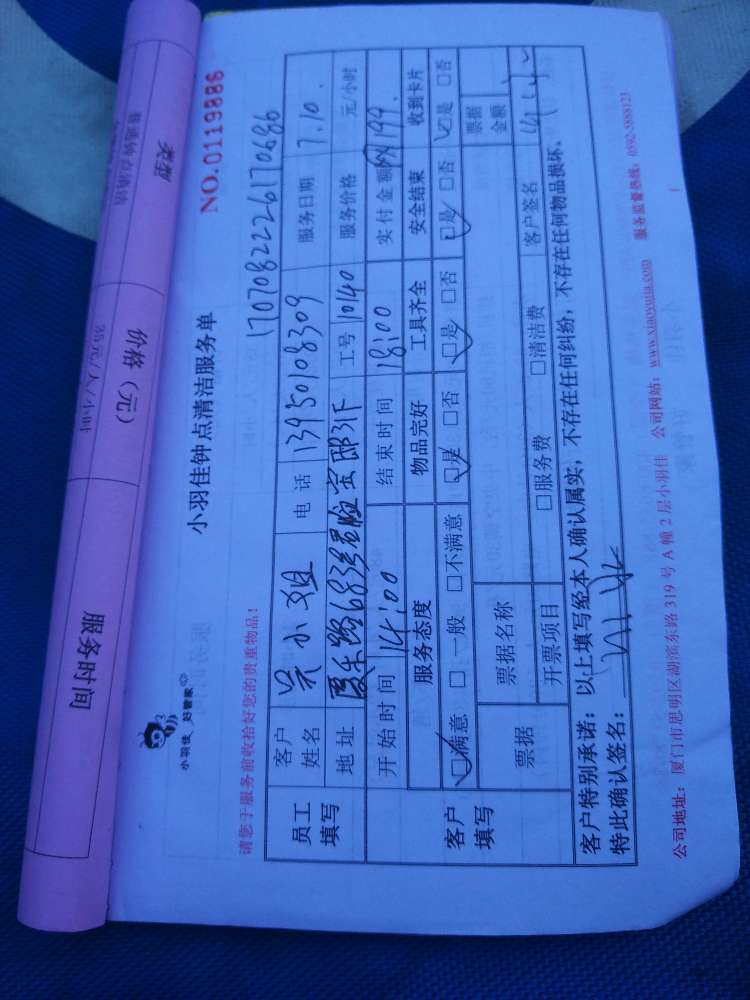 类型
价格（元）
服务时间
普通钟点清洁
35元/人/小时
小羽佳 好管家
小羽佳钟点清洁服务单
NO.0119886
请您于服务前收拾好您的贵重物品！
1707082226170686
员工填写
客户姓名 吴小姐 电话 13950108309 服务日期 7.10.
地址 厦禾路683号 工号 10140 服务价格 元/小时
开始时间 14:00 结束时间 18:00 实付金额 144.
客户填写
服务态度 物品完好 工具齐全 安全结束 收到卡片
☑满意 □一般 □不满意 ☑是 □否 ☑是 □否 ☑是 □否 ☑是 □否
票据 票据名称 票据金额
开票项目 □服务费 □清洁费 客户签名
客户特别承诺：以上填写经本人确认属实，不存在任何纠纷，不存在任何物品损坏。
特此确认签名：
公司地址：厦门市思明区湖滨东路319号A幢2层小羽佳 公司网站：www.xiaoyujia.com 服务监督热线：0592-5888123